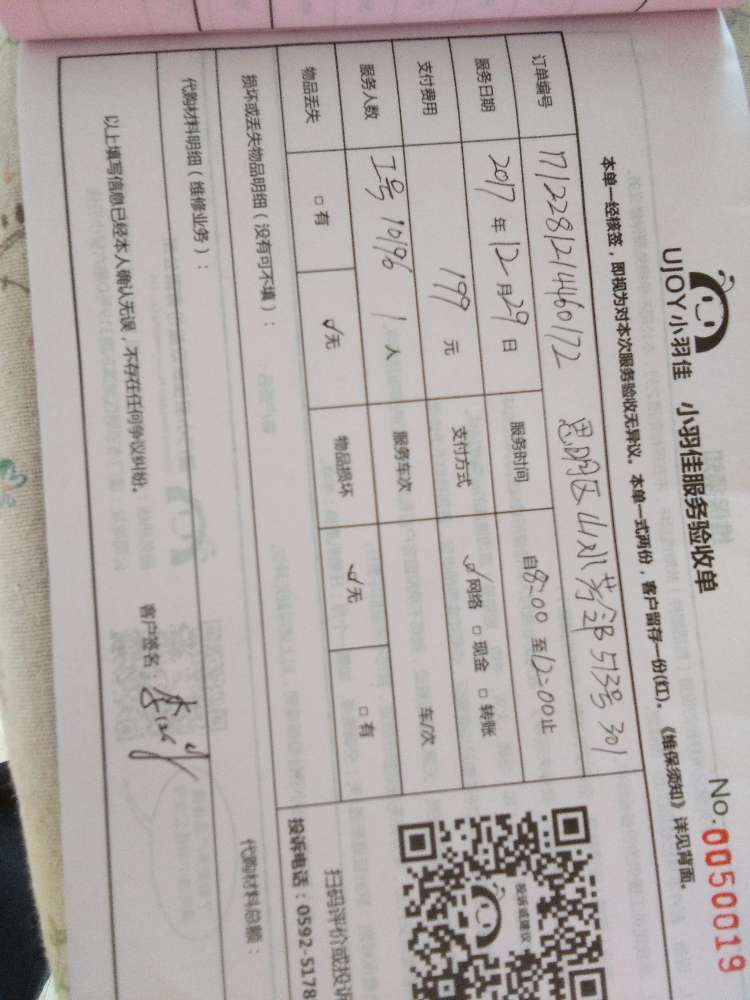 UJOY小羽佳 小羽佳服务验收单
No.0050019
本单一经核签，即视为对本次服务验收无异议。本单一式两份，客户留存一份(红)。《维保须知》详见背面。
订单编号 1712281214460172 思明区 513号 301
服务日期 2017年12月29日 服务时间 自8:00至12:00止
支付费用 199元 支付方式 ☑网络 □现金 □转账
服务人数 工号10196 1人 服务车次 车/次
物品丢失 □有 ☑无 物品损坏 ☑无 □有
投诉或建议
扫码评价或投诉
投诉电话：0592-5178
损坏或丢失物品明细（没有可不填）：
代购材料明细（维修业务）： 代购材料总额：
以上填写信息已经本人确认无误，不存在任何争议纠纷。 客户签名：李